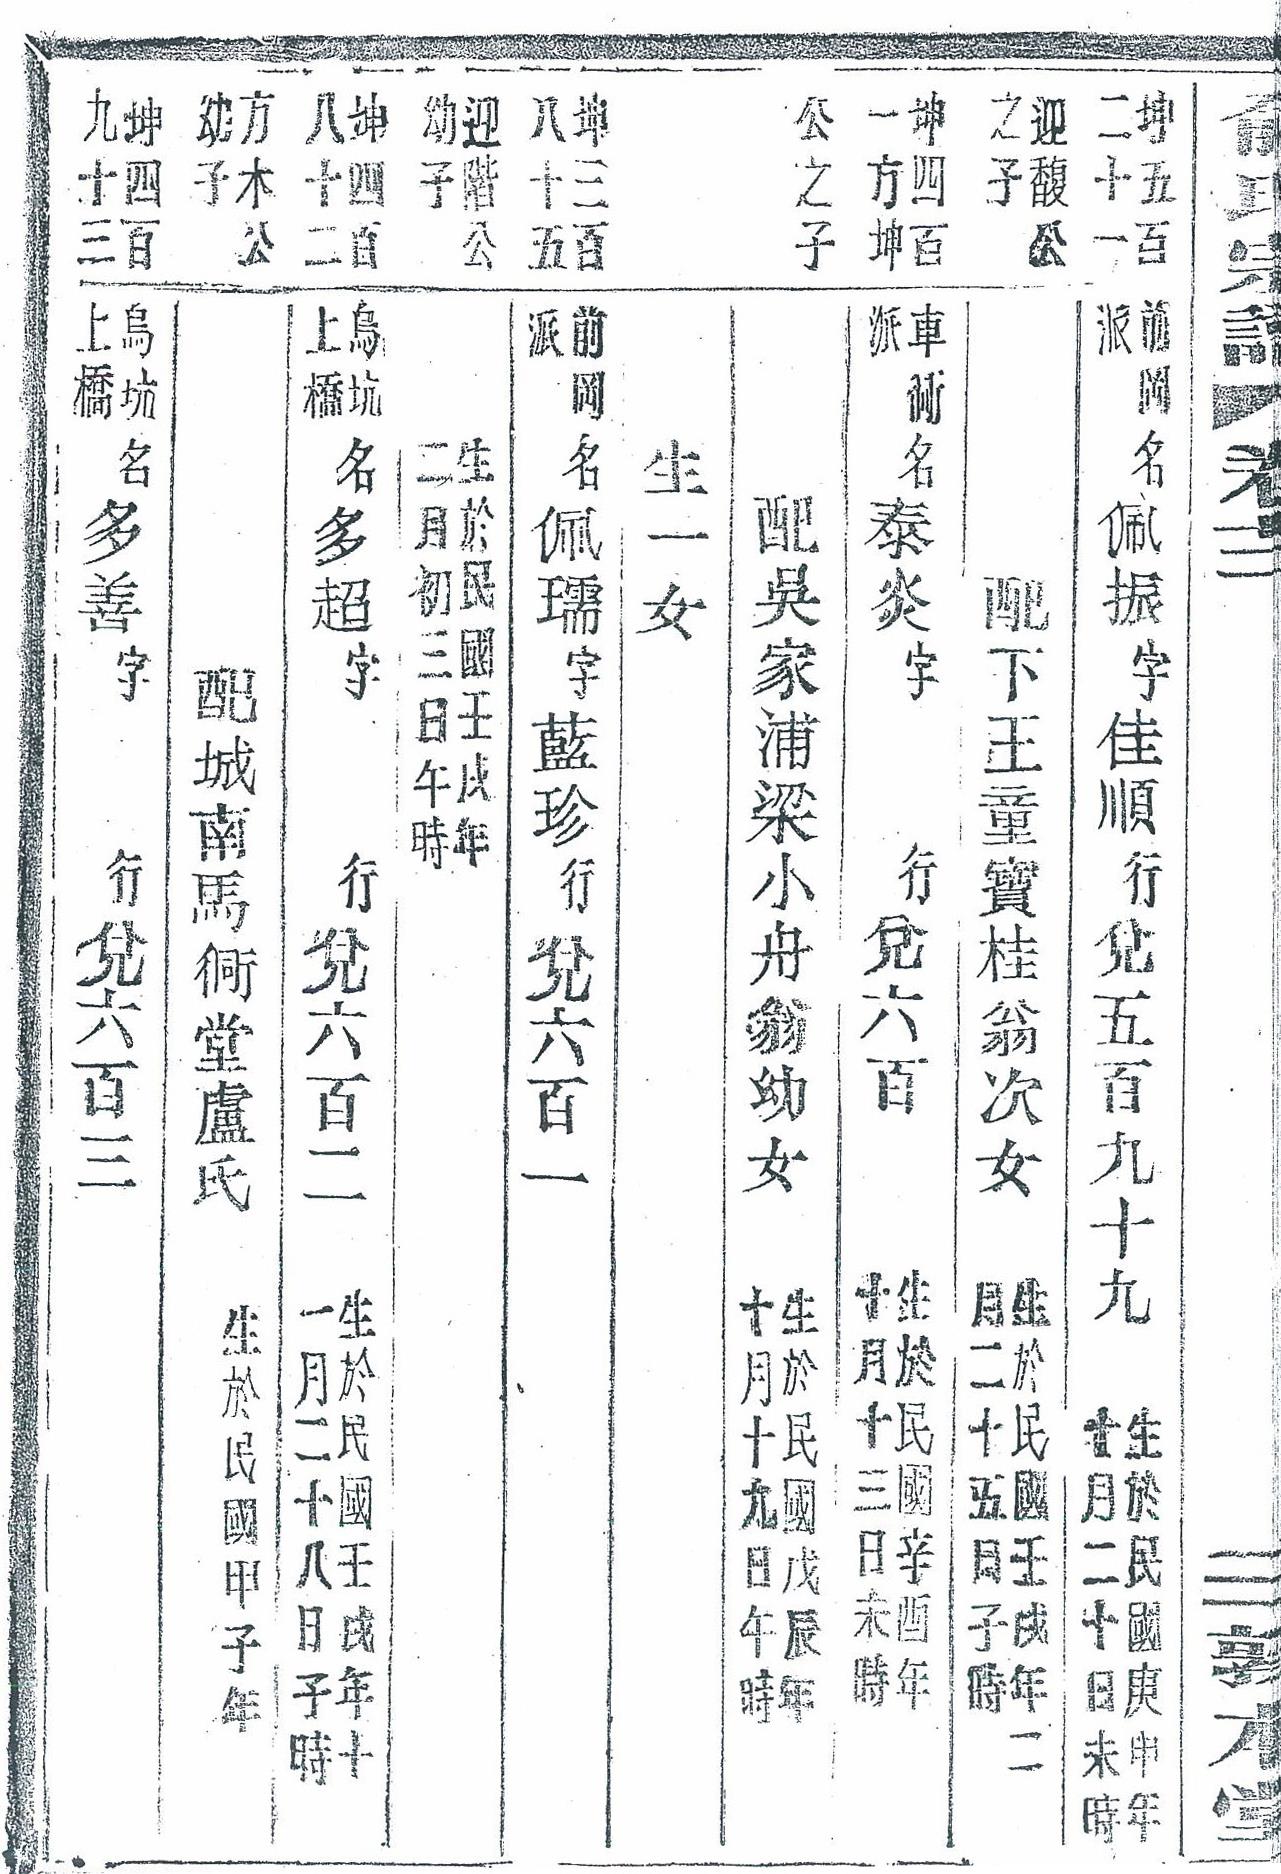 俞氏宗譜 卷二 三 敦本堂
坤五百
二十一
前岡
派
名佩振字佳順行兊五百九十九
生於民國庚申年
十月二十日未時
迎馥公
之子
配下王童寶桂翁次女
生於民國壬戌年二
月二十五日子時
坤四百
一方坤
車衖
派
名泰炎字 行兊六百
生於民國辛酉年
十月十三日未時
公之子
配吳家浦梁小舟翁幼女
生於民國戊辰年
十月十九日午時
生一女
坤三百
八十五
前岡
派
名佩瓀字藍珍行兊六百一
迎階公
幼子
生於民國壬戌年
二月初三日午時
坤四百
八十二
烏坑
上橋
名多超字 行兊六百二
生於民國壬戌年十
一月二十八日子時
方木公
幼子
配城南馬衕堂盧氏
生於民國甲子年
坤四百
九十三
烏坑
上橋
名多善字 行兊六百三